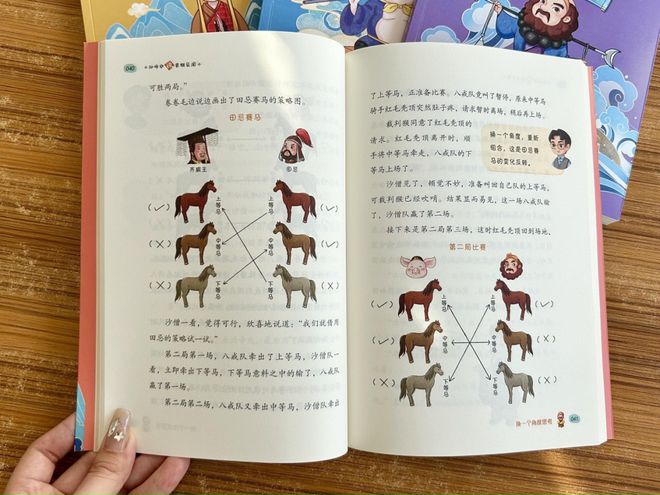 040
可胜两局。”
卷卷毛边说边画出了田忌赛马的策略图。
田忌赛马
齐威王
田忌
上等马
中等马
下等马
(✓)
(✓)
(×)
(✓)
(×)
(×)
沙僧一看，觉得可行，欣喜地说道：“我们就借用
田忌的策略试一试。”
第二局第一场，八戒队牵出了上等马，沙僧队一
看，立即牵出下等马，下等马意料之中的输了，八戒队
赢了第一场。
第二局第二场，八戒队又牵出中等马，沙僧队牵出
了上等马，正准备比赛。八戒队竟叫了暂停，原来中等马
骑手红毛秃顶突然肚子疼，请求暂时离场，稍后再上场。
裁判猴同意了红毛秃顶的
请求。红毛秃顶离开时，顺
手将中等马牵走，八戒队的下
等马上场了。
换一个角度，重新
组合，这是田忌赛
马的变化反转。
沙僧见了，顿觉不妙，准备叫回自己队的上等马，
可裁判猴已经吹哨。结果显而易见，这一场八戒队输
了，沙僧队赢了第二场。
接下来是第二局第三场，这时红毛秃顶回到场地，
第二局比赛
上等马
中等马
下等马
(✓)
(✓)
(✓)
(×)
(×)
(×)
换一个角度思考
041